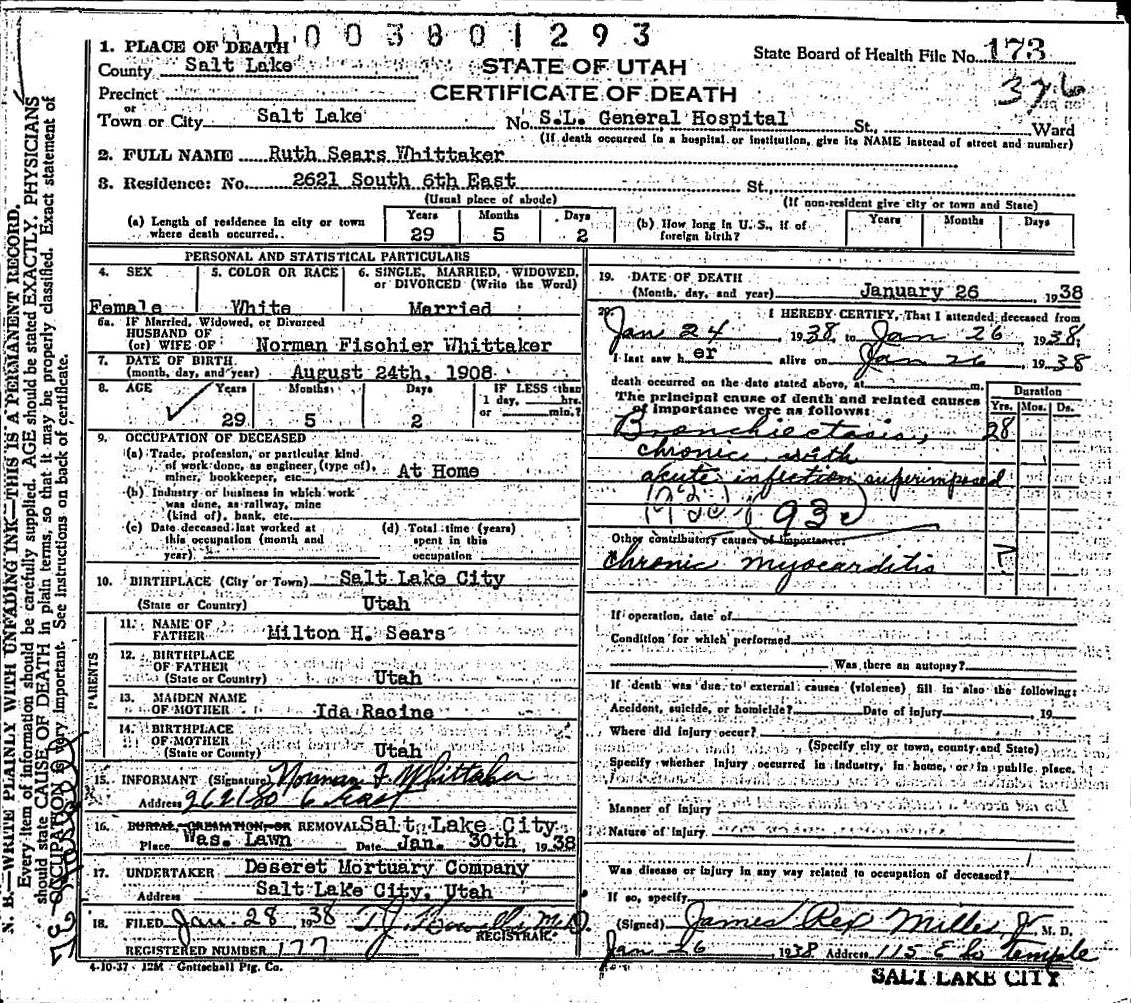 1003801293
1. PLACE OF DEATH
County Salt Lake
STATE OF UTAH
State Board of Health File No. 173
Precinct
CERTIFICATE OF DEATH
376
or
Town or City Salt Lake No. S.L. General Hospital St., Ward
(If death occurred in a hospital or institution, give its NAME instead of street and number)
2. FULL NAME Ruth Sears Whittaker
3. Residence: No. 2621 South 6th East St.
(Usual place of abode) (If non-resident give city or town and State)
(a) Length of residence in city or town where death occurred.. Years 29 Months 5 Days 2
(b) How long in U. S., if of foreign birth? Years Months Days
PERSONAL AND STATISTICAL PARTICULARS
4. SEX
Female
5. COLOR OR RACE
White
6. SINGLE, MARRIED, WIDOWED, or DIVORCED (Write the Word)
Married
6a. IF Married, Widowed, or Divorced
HUSBAND OF
(or) WIFE OF Norman Fischier Whittaker
7. DATE OF BIRTH
(month, day, and year) August 24th, 1908
8. AGE Years Months Days IF LESS than
1 day, hrs.
or min.?
29 5 2
9. OCCUPATION OF DECEASED
(a) Trade, profession, or particular kind
of work done, as engineer, (type of),
miner, bookkeeper, etc. At Home
(b) Industry or business in which work
was done, as railway, mine
(kind of), bank, etc.
(c) Date deceased last worked at
this occupation (month and
year)
(d) Total time (years)
spent in this
occupation
10. BIRTHPLACE (City or Town) Salt Lake City
(State or Country) Utah
PARENTS
11. NAME OF
FATHER Milton H. Sears
12. BIRTHPLACE
OF FATHER
(State or Country) Utah
13. MAIDEN NAME
OF MOTHER Ida Racine
14. BIRTHPLACE
OF MOTHER
(State or County) Utah
15. INFORMANT (Signature) Norman F Whittaker
Address 2621 So 6 East
16. BURIAL, CREMATION, OR REMOVAL Salt Lake City
Place Was. Lawn Date Jan. 30th, 1938
17. UNDERTAKER Deseret Mortuary Company
Address Salt Lake City, Utah
18. FILED Jan. 28, 1938 T.J. M.D.
REGISTRAR.
REGISTERED NUMBER 177
4-10-37 - 12M - Gottschall Ptg. Co.
19. DATE OF DEATH
(Month, day, and year) January 26, 1938
20. I HEREBY CERTIFY, That I attended deceased from
Jan 24, 1938, to Jan 26, 1938;
I last saw her alive on Jan 26, 1938
death occurred on the date stated above, at m.
The principal cause of death and related causes
of importance were as follows:
Duration
Yrs. Mos. Ds.
Bronchiectasis, 28
chronic with
acute infection superimposed
93c
Other contributory causes of importance:
chronic myocarditis ?
If operation, date of
Condition for which performed
Was there an autopsy?
If death was due to external causes (violence) fill in also the following:
Accident, suicide, or homicide? Date of injury , 19
Where did injury occur?
(Specify city or town, county and State)
Specify whether injury occurred in industry, in home, or in public place.
Manner of injury
Nature of injury
Was disease or injury in any way related to occupation of deceased?
If so, specify
(Signed) James Rex Miller, Jr M. D.
Jan 26, 1938 Address 115 E So Temple
SALT LAKE CITY
N. B.—WRITE PLAINLY WITH UNFADING INK—THIS IS A PERMANENT RECORD.
Every item of information should be carefully supplied. AGE should be stated EXACTLY. PHYSICIANS
should state CAUSE OF DEATH in plain terms, so that it may be properly classified. Exact statement of
OCCUPATION is very important. See instructions on back of certificate.